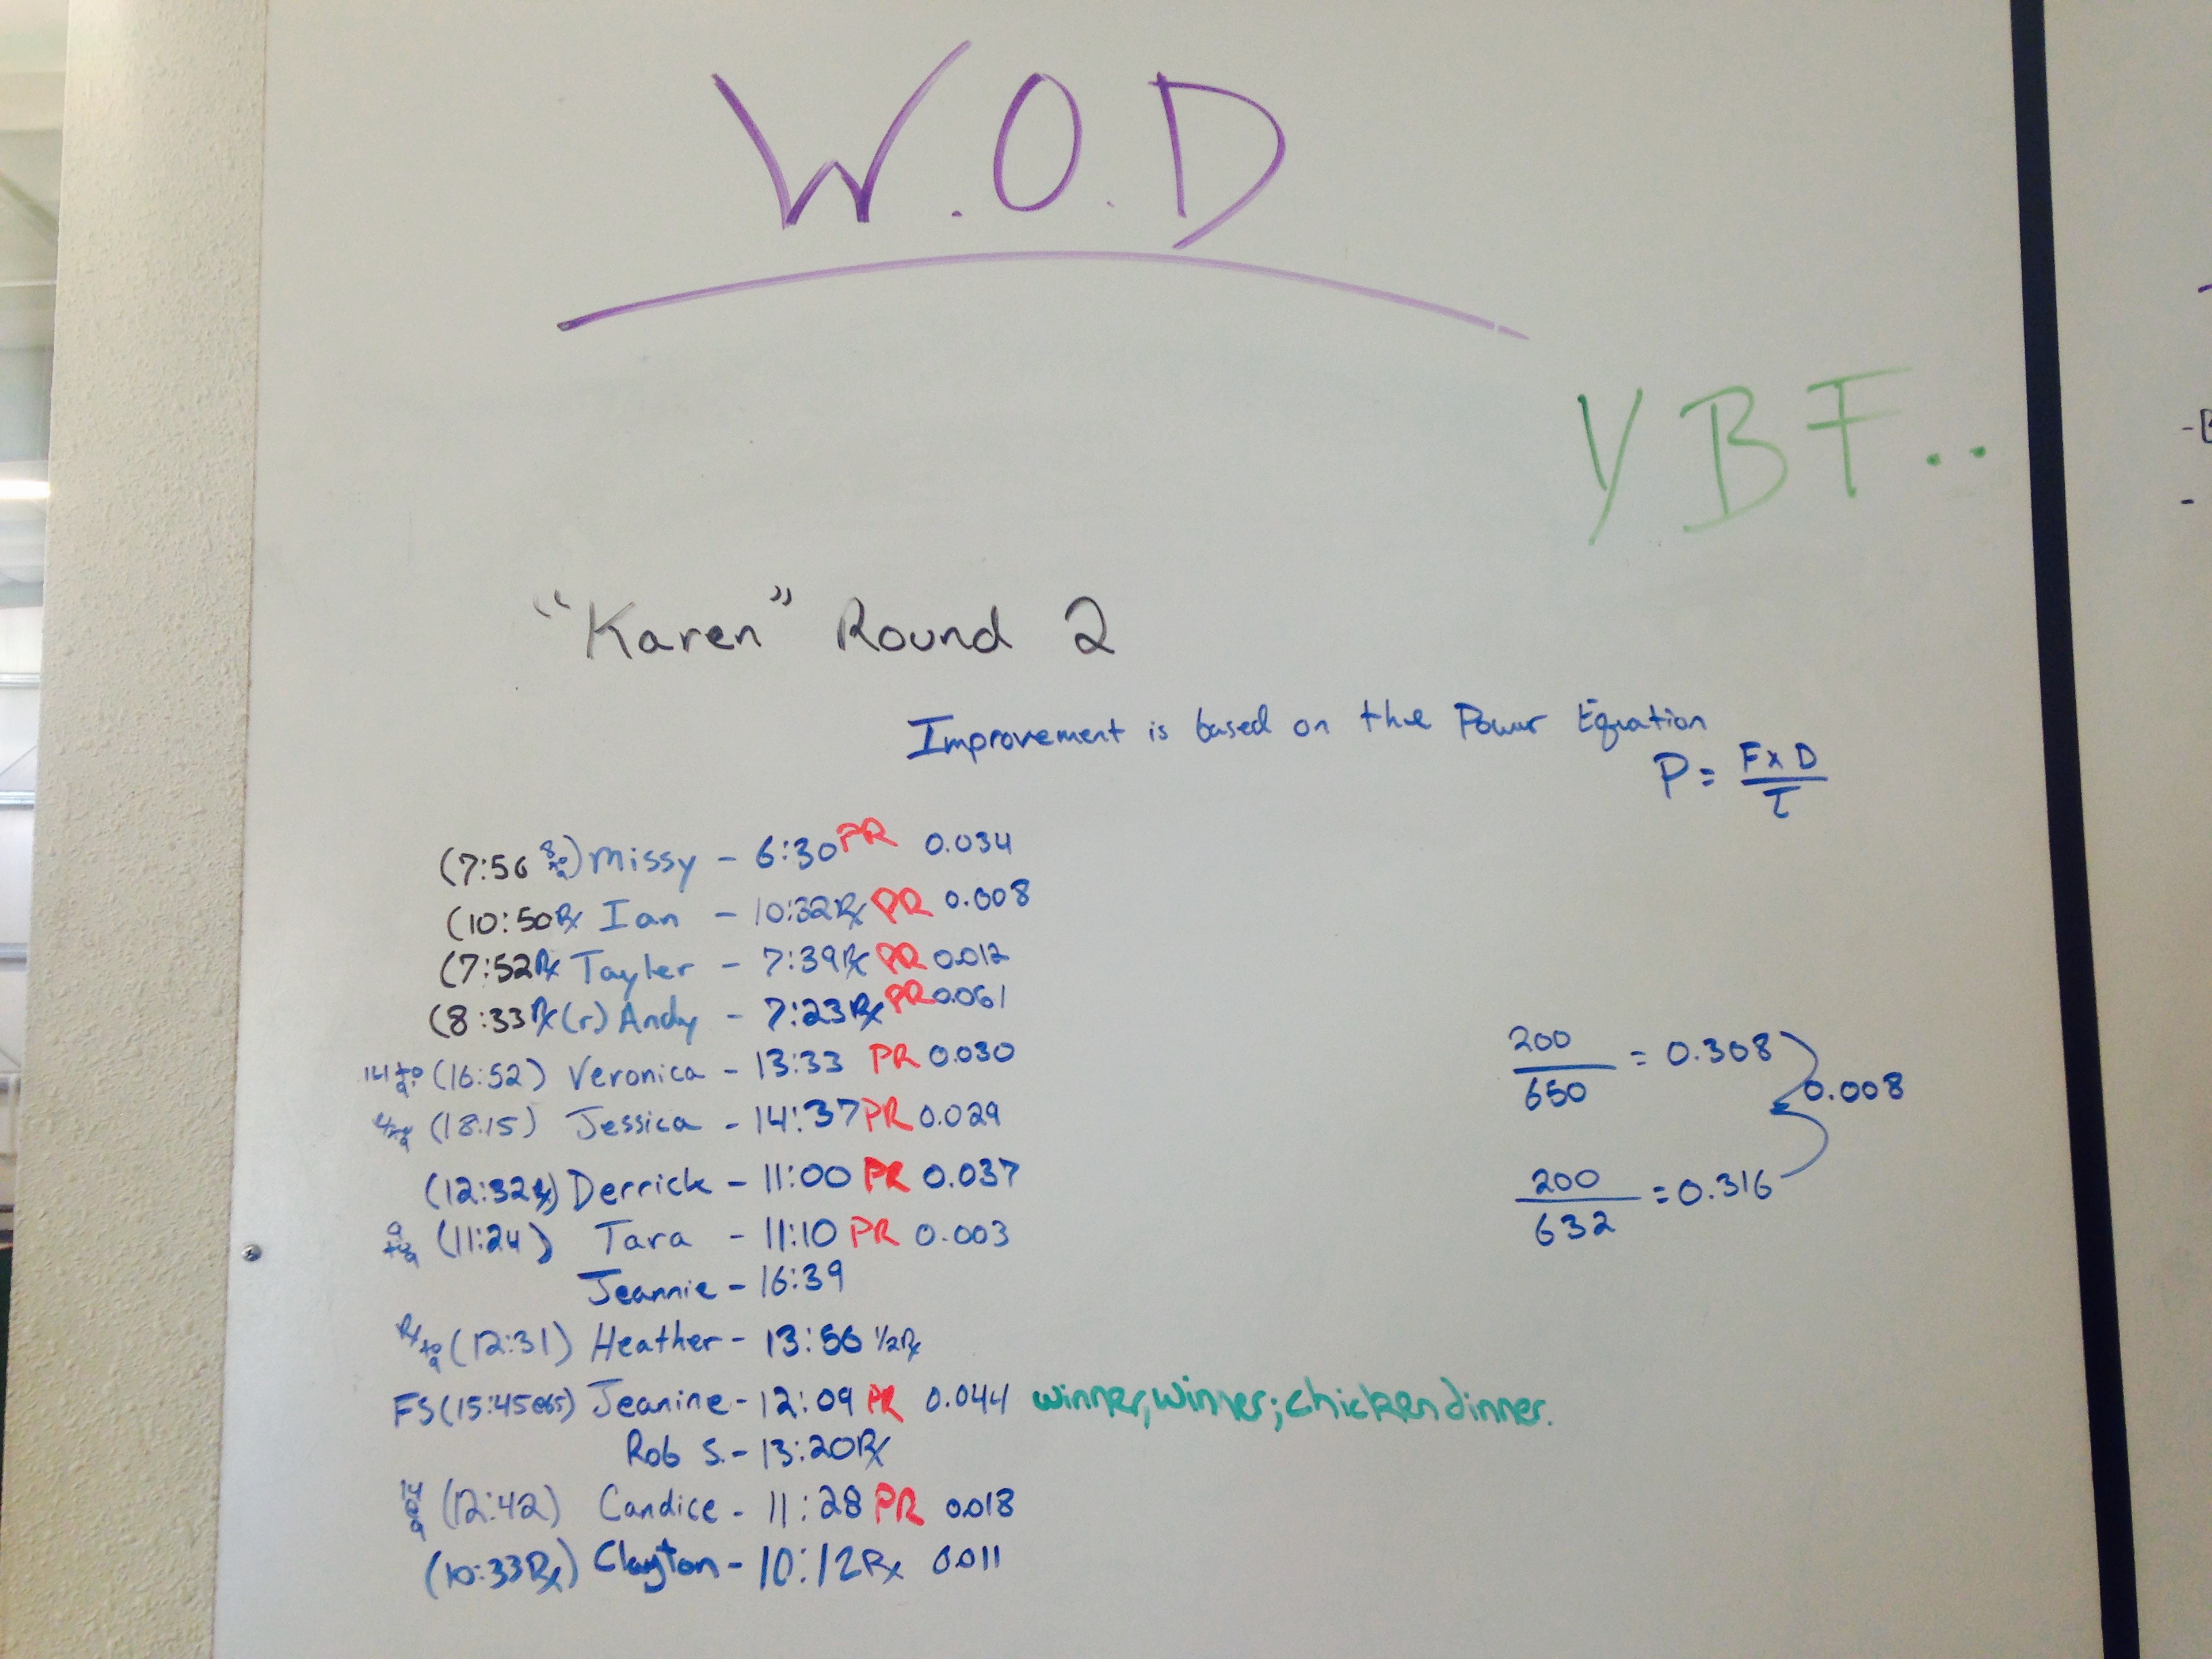 W.O.D
YBF..
"Karen" Round 2
Improvement is based on the Power Equation
P = F x D / T
(7:56 ) Missy - 6:30 PR 0.034
(10:50 Rx Ian - 10:32 Rx PR 0.008
(7:52 Rx Tayler - 7:39 Rx PR 0.012
(8:33 Rx (r) Andy - 7:23 Rx PR 0.061
14 to 9 (16:52) Veronica - 13:33 PR 0.030
(18:15) Jessica - 14:37 PR 0.029
(12:32 Rx) Derrick - 11:00 PR 0.037
(11:24) Tara - 11:10 PR 0.003
Jeannie - 16:39
Rx to 9 (12:31) Heather - 13:56 1/2 Rx
FS (15:45 ) Jeanine - 12:09 PR 0.044 winner, winner; chicken dinner.
Rob S. - 13:20 Rx
14 to 9 (12:42) Candice - 11:28 PR 0.018
(10:33 Rx) Clayton - 10:12 Rx 0.011
200 / 650 = 0.308
0.008
200 / 632 = 0.316